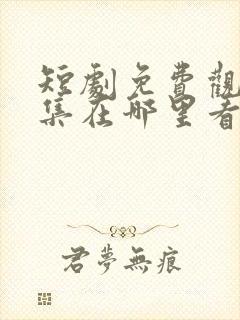 短劇免費觀
集在哪里看
君夢無痕